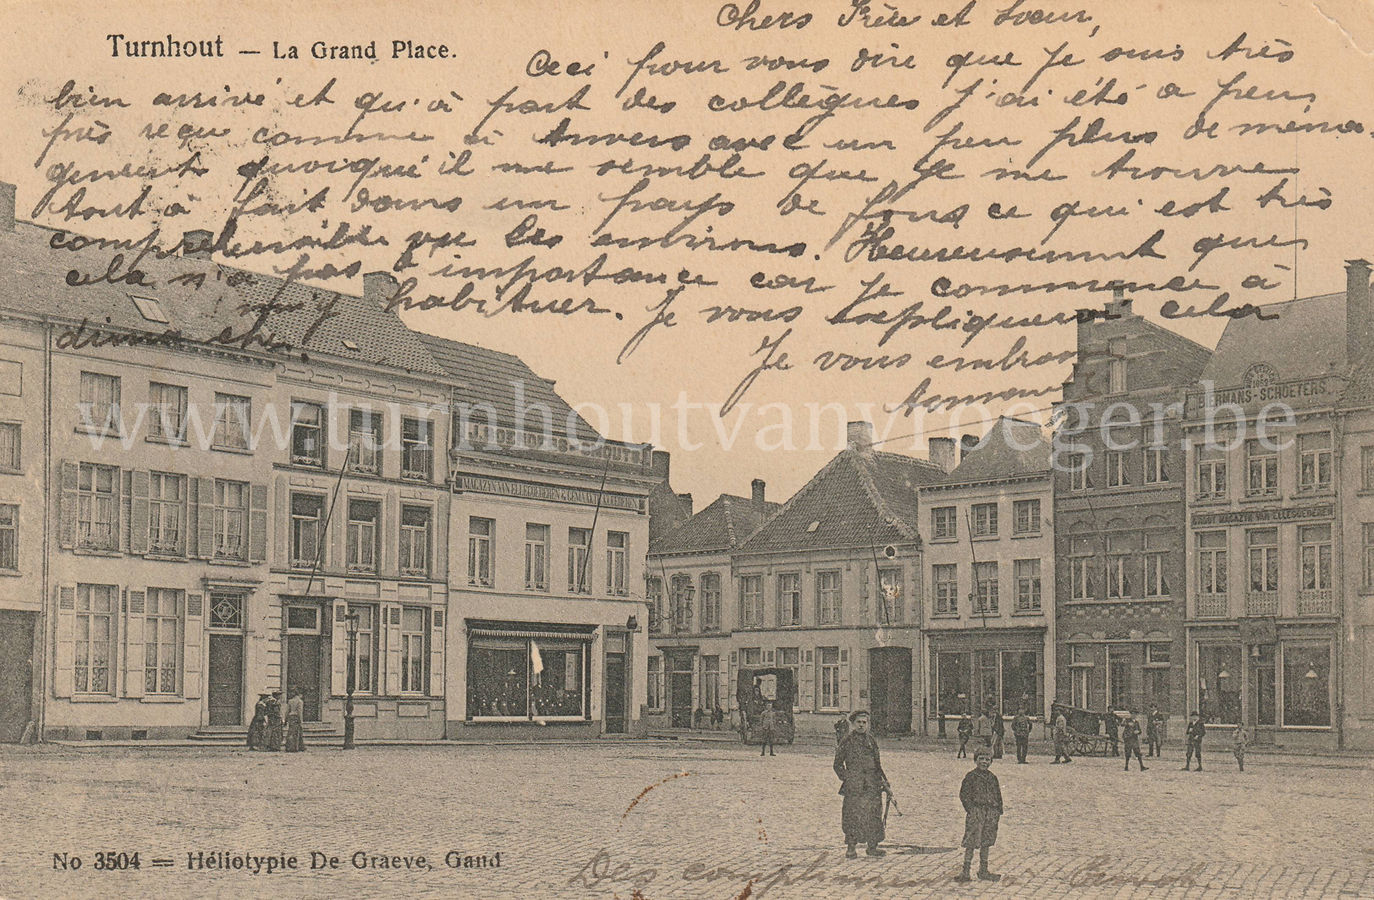 Turnhout — La Grand Place.
Chers Frère et Sœur,
Ceci pour vous dire que je suis très
bien arrivé et qu'à part des collègues j'ai été a peu
près reçu comme à Anvers avec un peu plus de ména-
gement quoiqu'il me semble que je me trouve
tout à fait dans un pays de fous ce qui est très
compréhensible vu les environs. Heureusement que
cela n'a pas d'importance car je commence à
m'y habituer. Je vous expliquerai cela
dimanche.
Je vous embrasse
Armand
www.turnhoutvanvroeger.be
BIERMANS-SCHOETERS
MAGAZYN VAN ELLEGOEDEREN &
GROOT MAGAZYN VAN ELLEGOEDEREN
No 3504 = Héliotypie De Graeve, Gand
Des compliments à